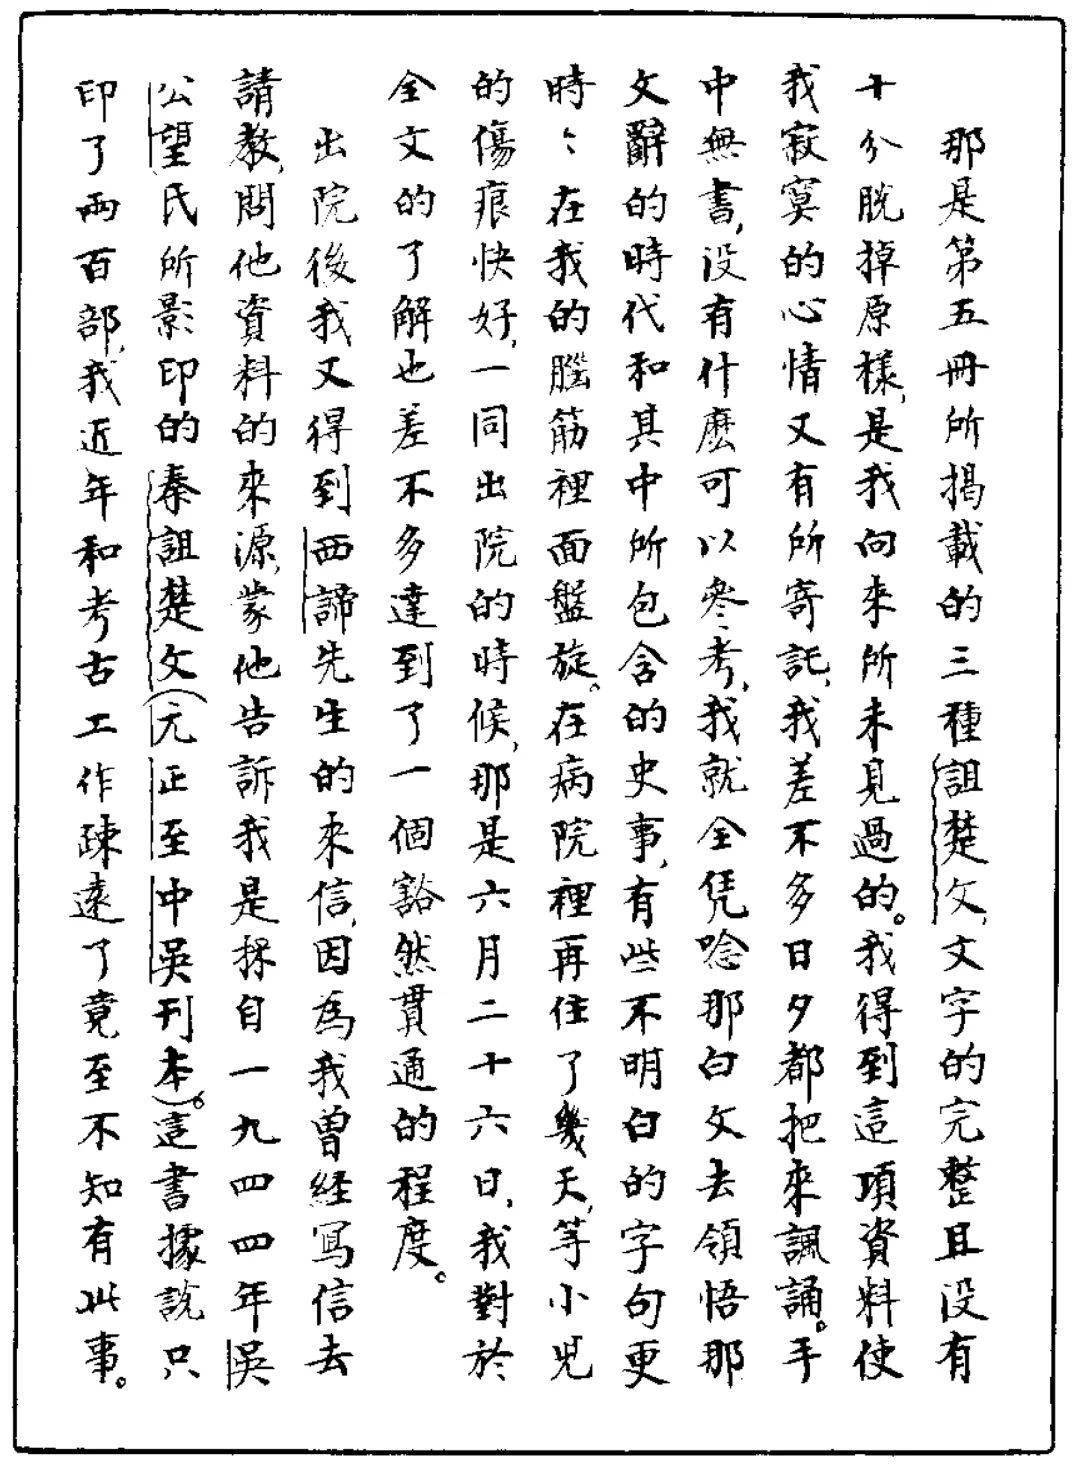 那是第五冊所揭載的三種詛楚文，文字的完整且没有
十分脱掉原樣，是我向來所未見過的。我得到這項資料使
我寂寞的心情又有所寄託，我差不多日夕都把來諷誦。手
中無書，没有什麽可以參考，我就全凭唸那白文去領悟那
文辭的時代和其中所包含的史事，有些不明白的字句更
時々在我的腦筋裡面盤旋。在病院裡再住了幾天，等小児
的傷痕快好，一同出院的時候，那是六月二十六日，我對於
全文的了解也差不多達到了一個豁然貫通的程度。
出院後我又得到西諦先生的來信，因為我曾経写信去
請教，問他資料的來源，蒙他告訴我是採自一九四四年吳
公望氏所影印的秦詛楚文（元至正中吳刊本）。這書據説只
印了兩百部，我近年和考古工作疎遠了竟至不知有此事。